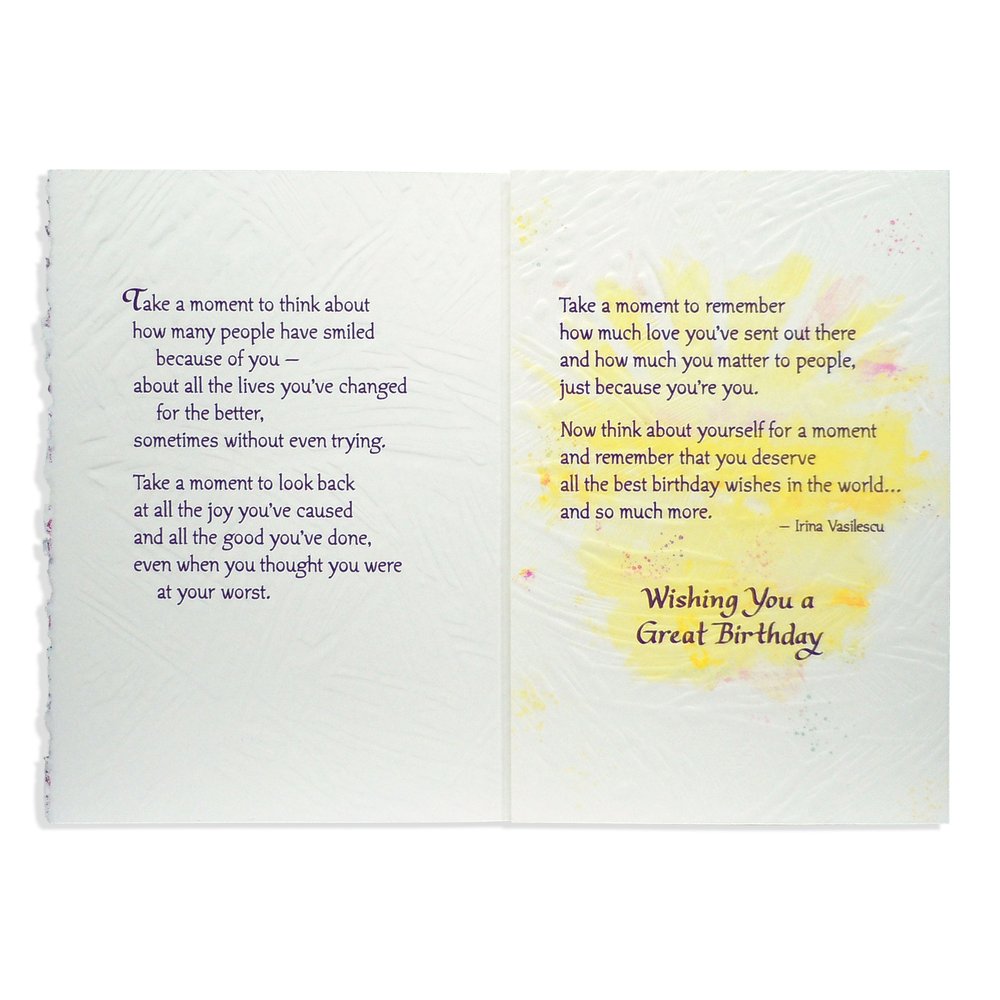 Take a moment to think about
how many people have smiled
because of you —
about all the lives you've changed
for the better,
sometimes without even trying.
Take a moment to look back
at all the joy you've caused
and all the good you've done,
even when you thought you were
at your worst.
Take a moment to remember
how much love you've sent out there
and how much you matter to people,
just because you're you.
Now think about yourself for a moment
and remember that you deserve
all the best birthday wishes in the world...
and so much more.
— Irina Vasilescu
Wishing You a
Great Birthday